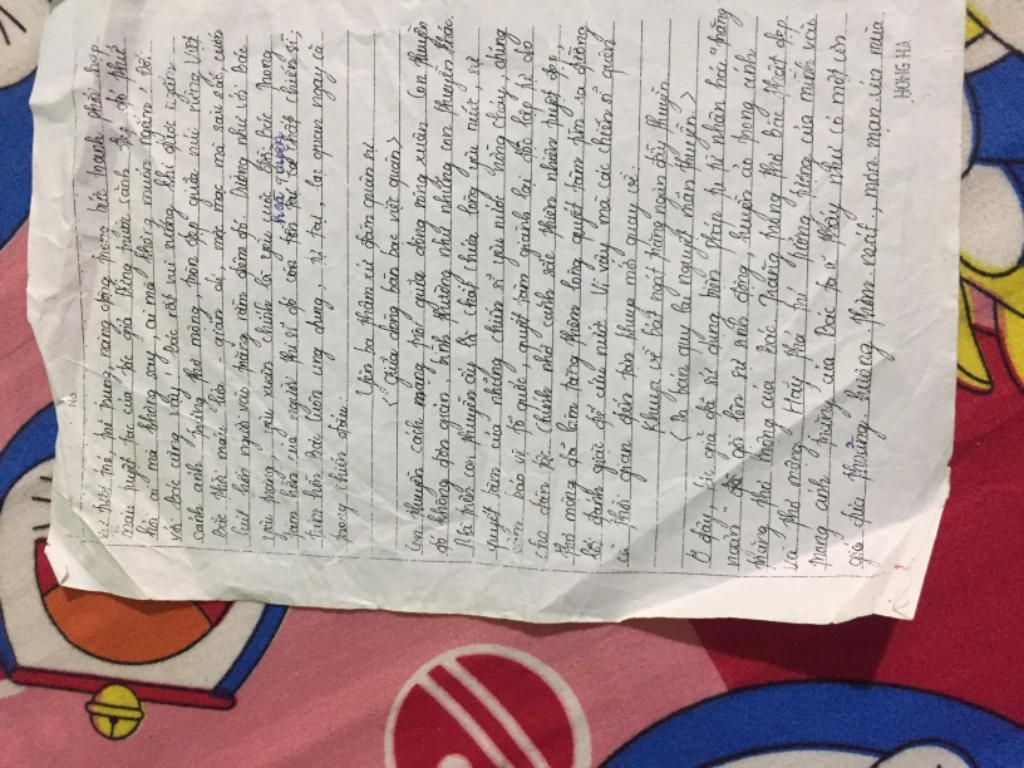 mới mẻ hé nung, năng động trong bức tranh phối hợp
màu nước bạc của tác giả bằng xuân cảnh vật, đó, thử
hỏi ai mà không say, ai mà không muốn ngắm, đối
với Bác cũng vậy, Bác rất vui sướng khi được ngắm
cảnh ánh trăng thơ mộng, tròn đẹp giữa núi rừng Việt
Bắc. Phải màu của dân gian ấy, mộc mạc mà sâu sắc, cuốn
hút hồn người vào trăng rằm đêm đó. Dường như với Bác
yêu trăng, yêu xuân chính là yêu cuộc đời. Bác trong
tâm hồn của người thi sĩ đó còn tồn tại hòa quyện chất chiến sĩ,
tâm hồn Bác luôn ung dung, tự tại, lạc quan ngay cả
trong chiến đấu.
Yên ba thâm xứ đàm quân sự
(Giữa dòng bàn bạc việc quân)
Con thuyền cách mạng trôi giữa dòng sông xuân. Con thuyền
đó không đơn giản, bình thường như những con thuyền khác.
Mà trên con thuyền ấy là chất chứa lòng yêu nước, sự
quyết tâm của những chiến sĩ yêu nước nồng cháy, đứng
bảo vệ tổ quốc, quyết tâm giành lại độc lập tự do
cho dân tộc. Chính nhờ cảnh sắc thiên nhiên tuyệt đẹp,
thơ mộng đã làm tăng thêm lòng quyết tâm tìm ra đường
lối đánh giặc để cứu nước. Vì vậy mà các chiến sĩ quên
cả thời gian đến tận khuya mới quay về.
Khuya về bát ngát trăng ngân đầy thuyền
(Dạ bán quy lai nguyệt mãn thuyền)
Ở đây, tác giả đã sử dụng biện pháp tu từ nhân hóa "trăng
ngân" để gợi lên sự sinh động, huyền ảo trong cảnh
trăng thơ mộng của Bác. Trăng trong thơ Bác thật đẹp
và thơ mộng. Hãy thử trí tưởng tượng của mình vào
trong ánh trăng của Bác ta sẽ thấy như có một cơn
gió dìu thoảng hương thơm ngát, mơn man của mùa
HONG HA